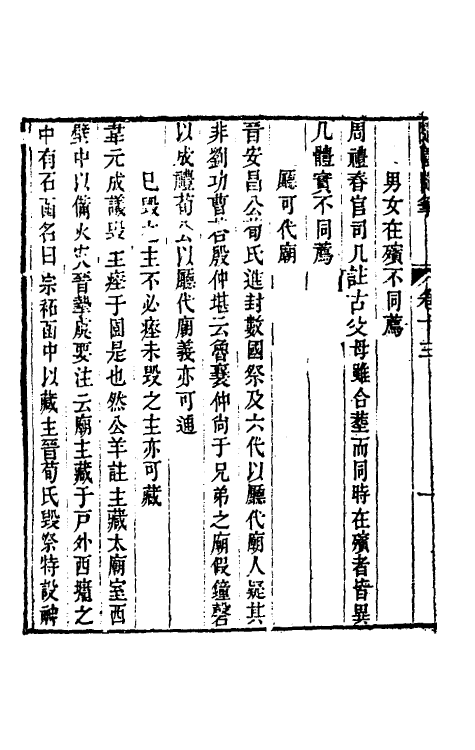 隨園隨筆
卷十三
一
男女在殯不同薦
周禮春官司几註古父母雖合塟而同時在殯者皆異
几體實不同薦
廳可代廟
晉安昌公荀氏進封數國祭及六代以廳代廟人疑其
非劉功曹荅殷仲堪云魯襄仲尙于兄弟之廟假鐘磬
以成禮荀公以廳代廟義亦可通
已毀之主不必瘞未毀之主亦可藏
韋元成議毀主瘞于園是也然公羊註主藏太廟室西
壁中以備火災晉摯虞要注云廟主藏于戶外西牖之
中有石函名曰宗祏函中以藏主晉荀氏毀祭特設神